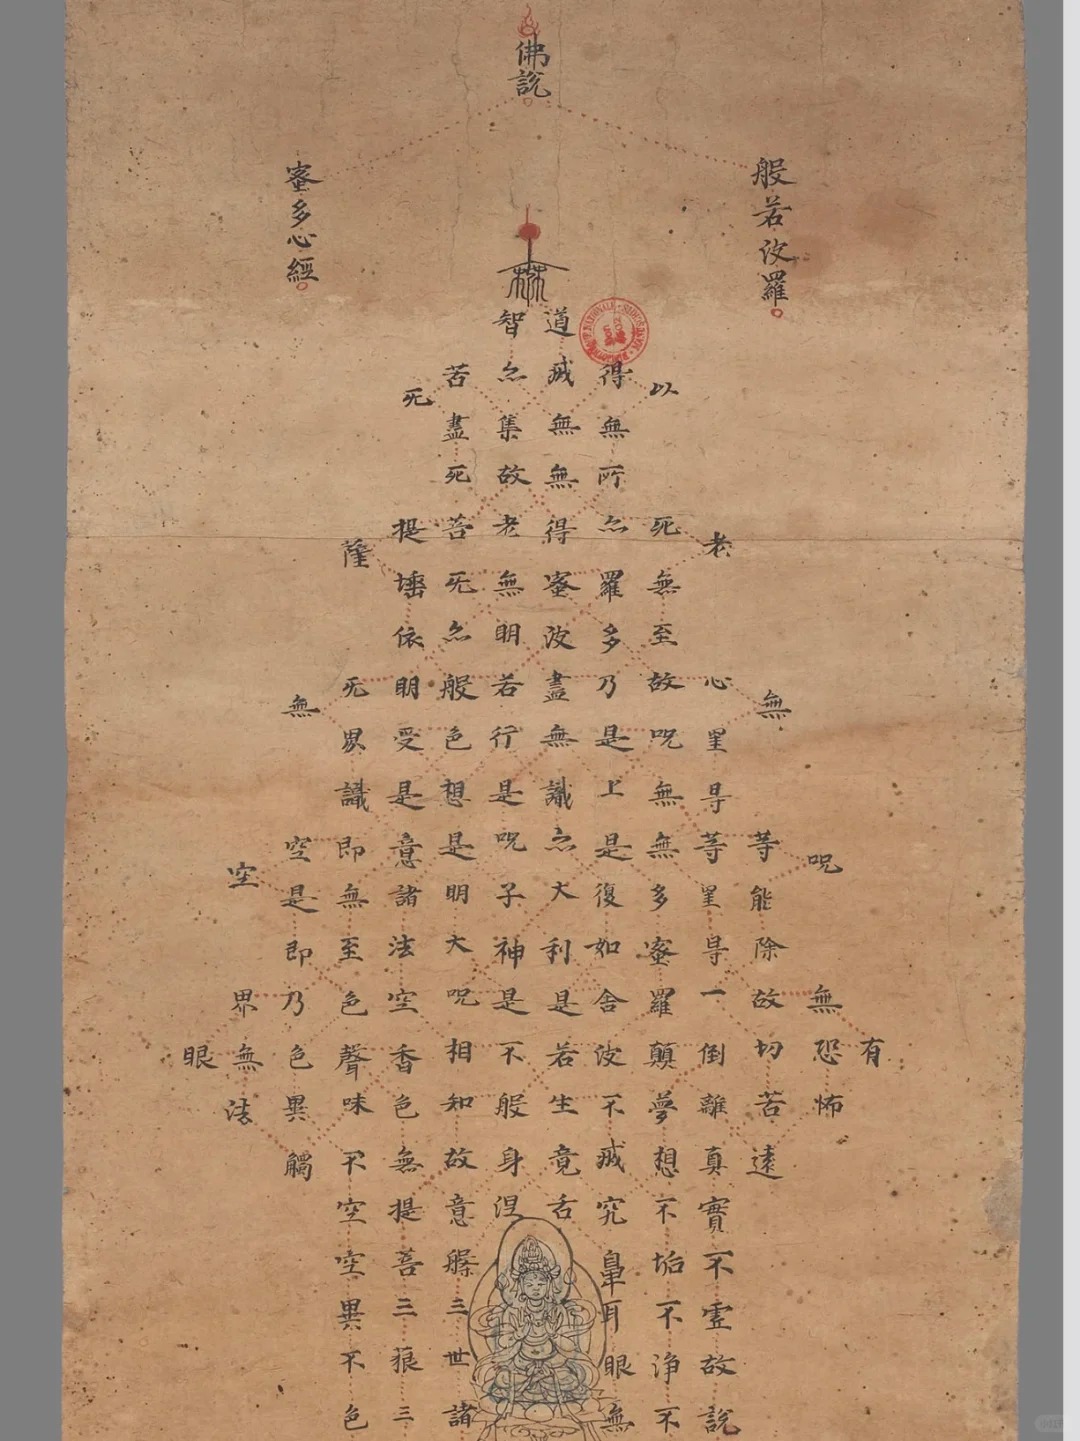 佛說
般若波羅
蜜多心經
有
呪無恐怖
無等能除故切苦遠
老心罣㝵等罣㝵一倒離真實不虛故說
以死無至故呪無無多蜜羅顛夢想不垢不淨不
得無所亦羅多乃是上是復如舍波不滅究鼻耳眼無
道滅無無得蜜波盡無識亦大利是若生竟舌
智亦集故老無明若行是呪子神是不般身涅
苦盡死菩无亦般色想是明大呪相知故意槃三世諸
无提埵依明受是意諸法空香色無提菩三三
薩无界識即無至色聲味不空空異不色
無空是即乃色異觸
空界無法
眼